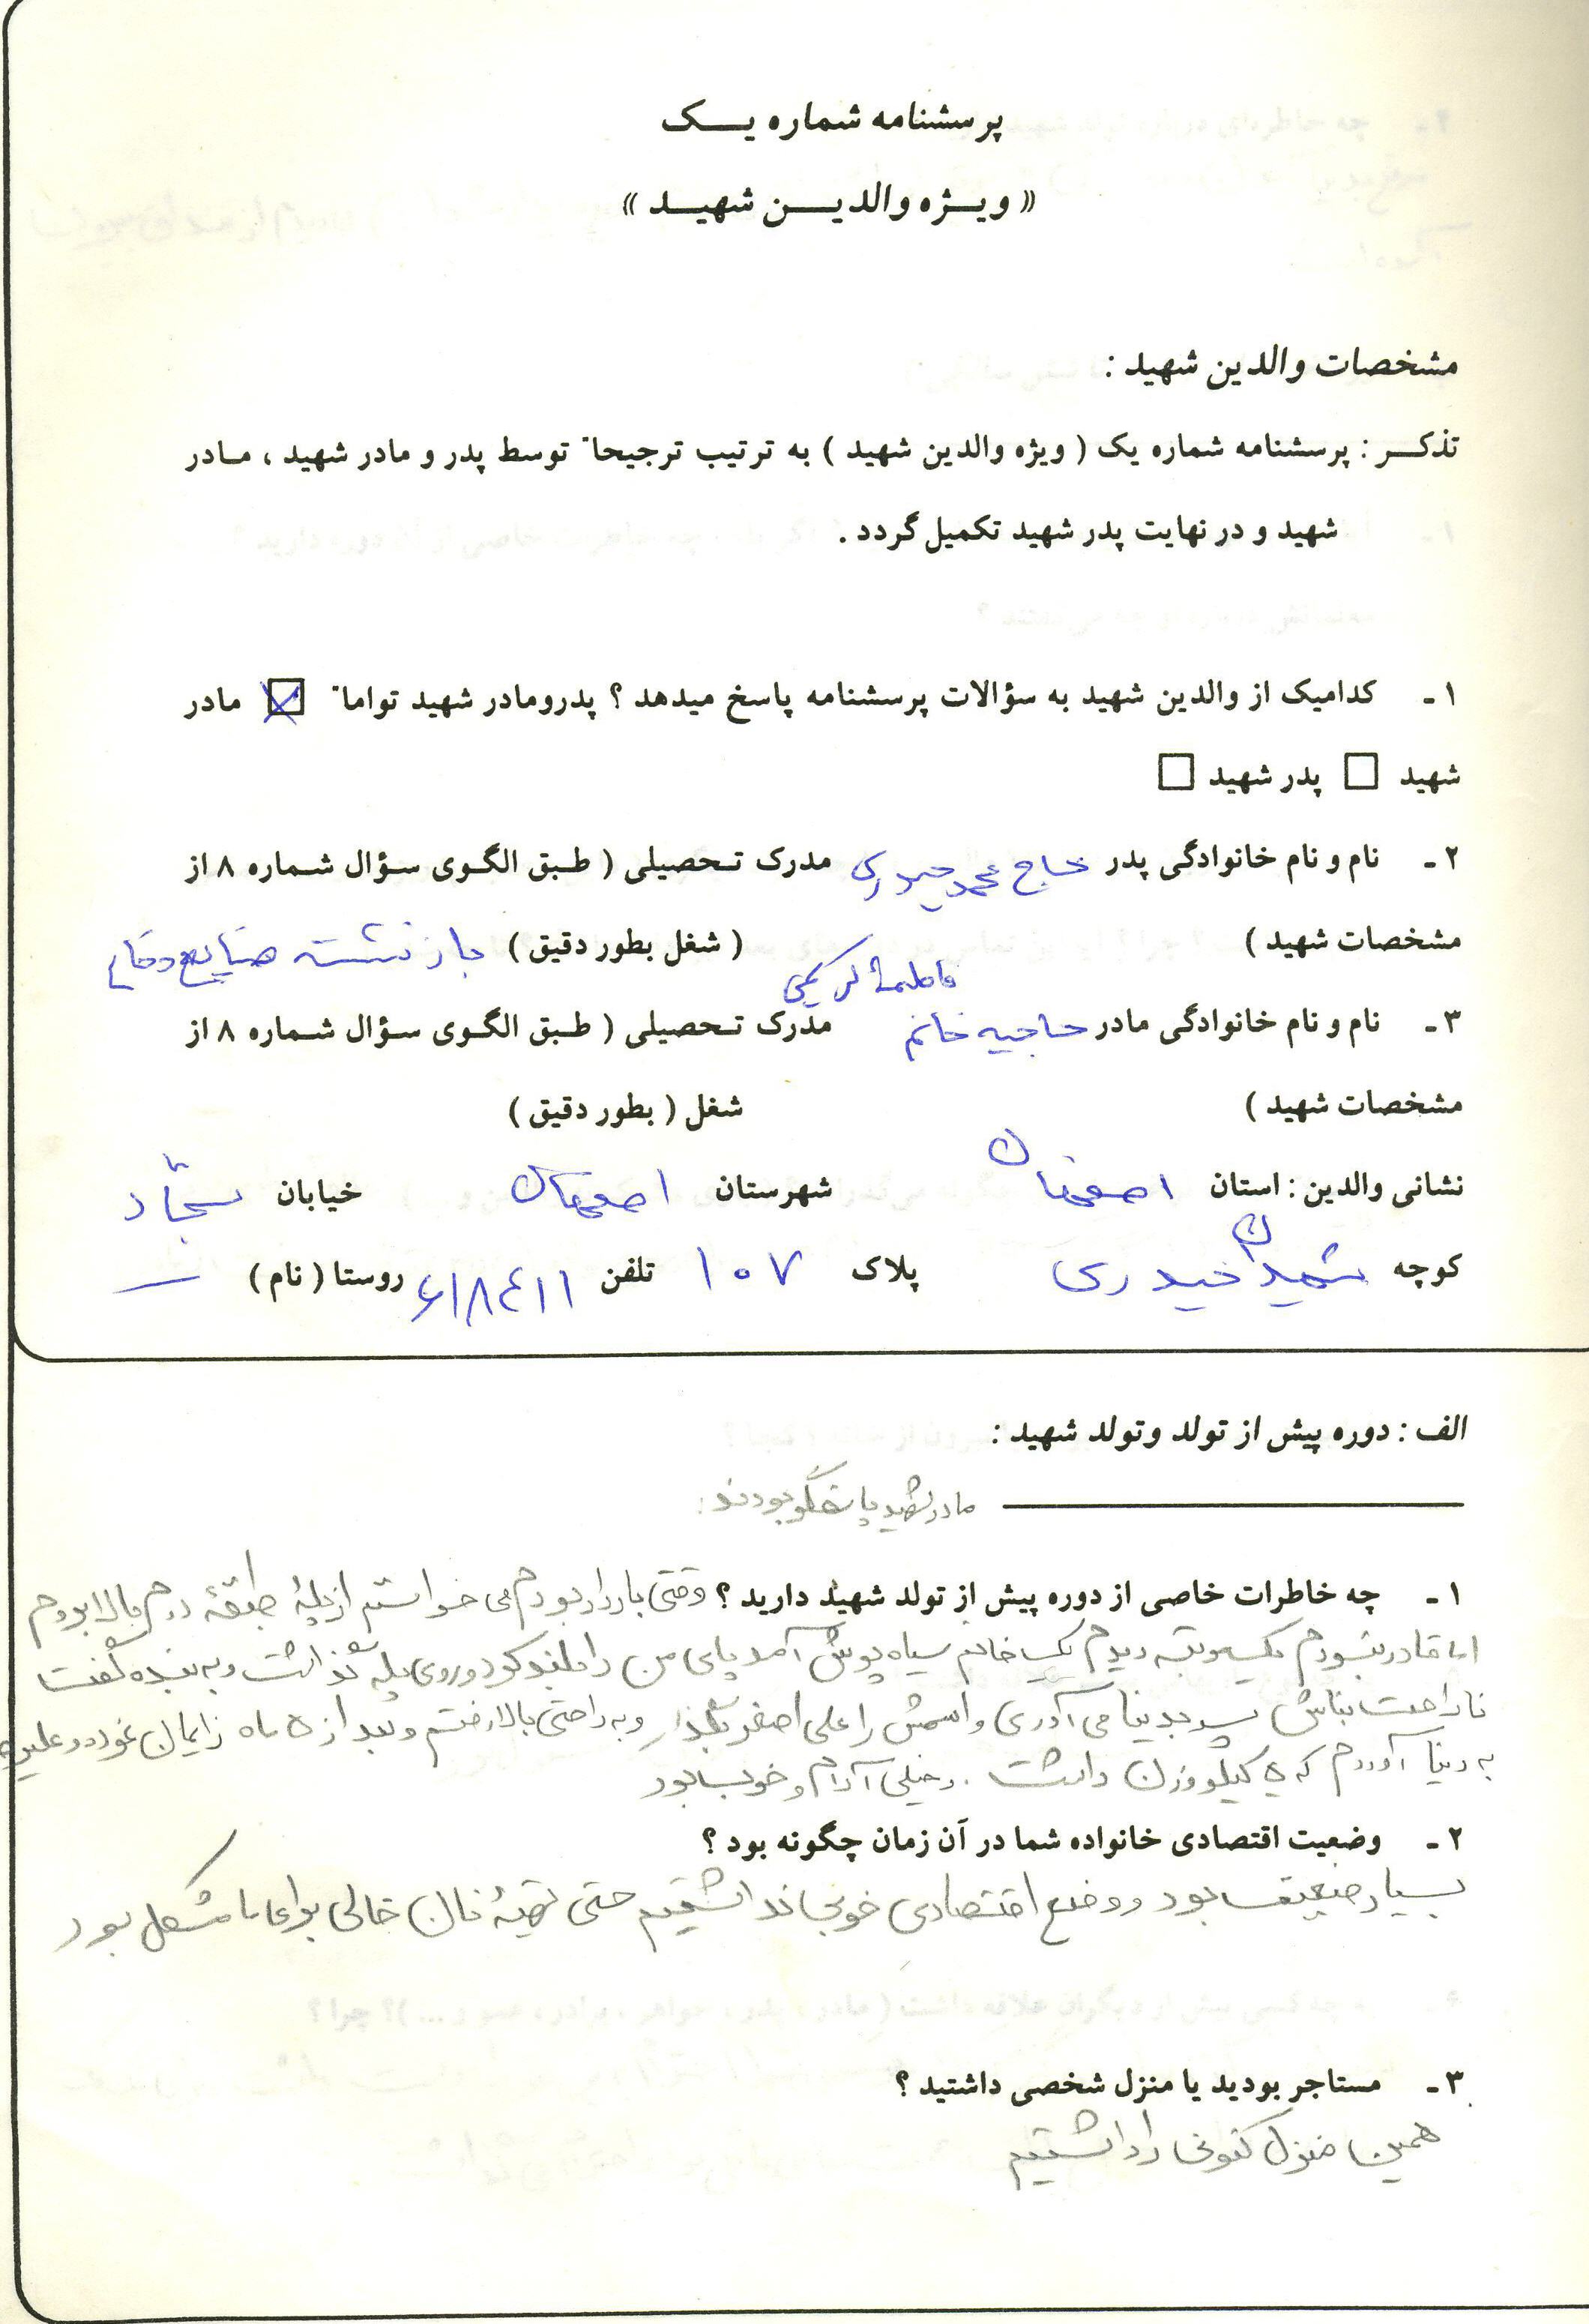 پرسشنامه شماره یک
« ویژه والدین شهید »
مشخصات والدین شهید :
تذکر : پرسشنامه شماره یک ( ویژه والدین شهید ) به ترتیب ترجیحا" توسط پدر و مادر شهید ، مادر
شهید و در نهایت پدر شهید تکمیل گردد .
۱ - کدامیک از والدین شهید به سؤالات پرسشنامه پاسخ میدهد ؟ پدرومادر شهید تواما" ☒ مادر
شهید □ پدر شهید □
۲ - نام و نام خانوادگی پدر حاج محمد حیدری مدرک تحصیلی ( طبق الگوی سؤال شماره ۸ از
مشخصات شهید ) ( شغل بطور دقیق ) بازنشسته صنایع دفاع
فاطمه کریمی
۳ - نام و نام خانوادگی مادر حاجیه خانم مدرک تحصیلی ( طبق الگوی سؤال شماره ۸ از
مشخصات شهید ) شغل ( بطور دقیق )
نشانی والدین : استان اصفهان شهرستان اصفهان خیابان سجّاد
کوچه شهیدان حیدری پلاک ۱۰۷ تلفن ۶۱۸۴۱۱ روستا ( نام ) —
الف : دوره پیش از تولد وتولد شهید :
مادر شهید پاسخگو بودند :
۱ - چه خاطرات خاصی از دوره پیش از تولد شهید دارید ؟ وقتی باردار بودم می خواستم از پلهٔ طبقهٔ دوم بالا بروم
اما قادر نبودم یکمرتبه دیدم یک خانم سیاه پوش آمد پای من را بلند کرد و روی پله گذاشت و به بنده گفت
ناراحت نباش پسر بدنیا می آوری و اسمش را علی اصغر بگذار و به راحتی بالا رفتم و بعد از ۵ ماه زایمان نمودم و
به دنیا آوردم که ۵ کیلو وزن داشت . خیلی آرام و خوب بود
۲ - وضعیت اقتصادی خانواده شما در آن زمان چگونه بود ؟
بسیار ضعیف بود و وضع اقتصادی خوبی نداشتیم حتی تهیهٔ نان خالی برای ما مشکل بود
۳ - مستاجر بودید یا منزل شخصی داشتید ؟
همین منزل کنونی را داشتیم